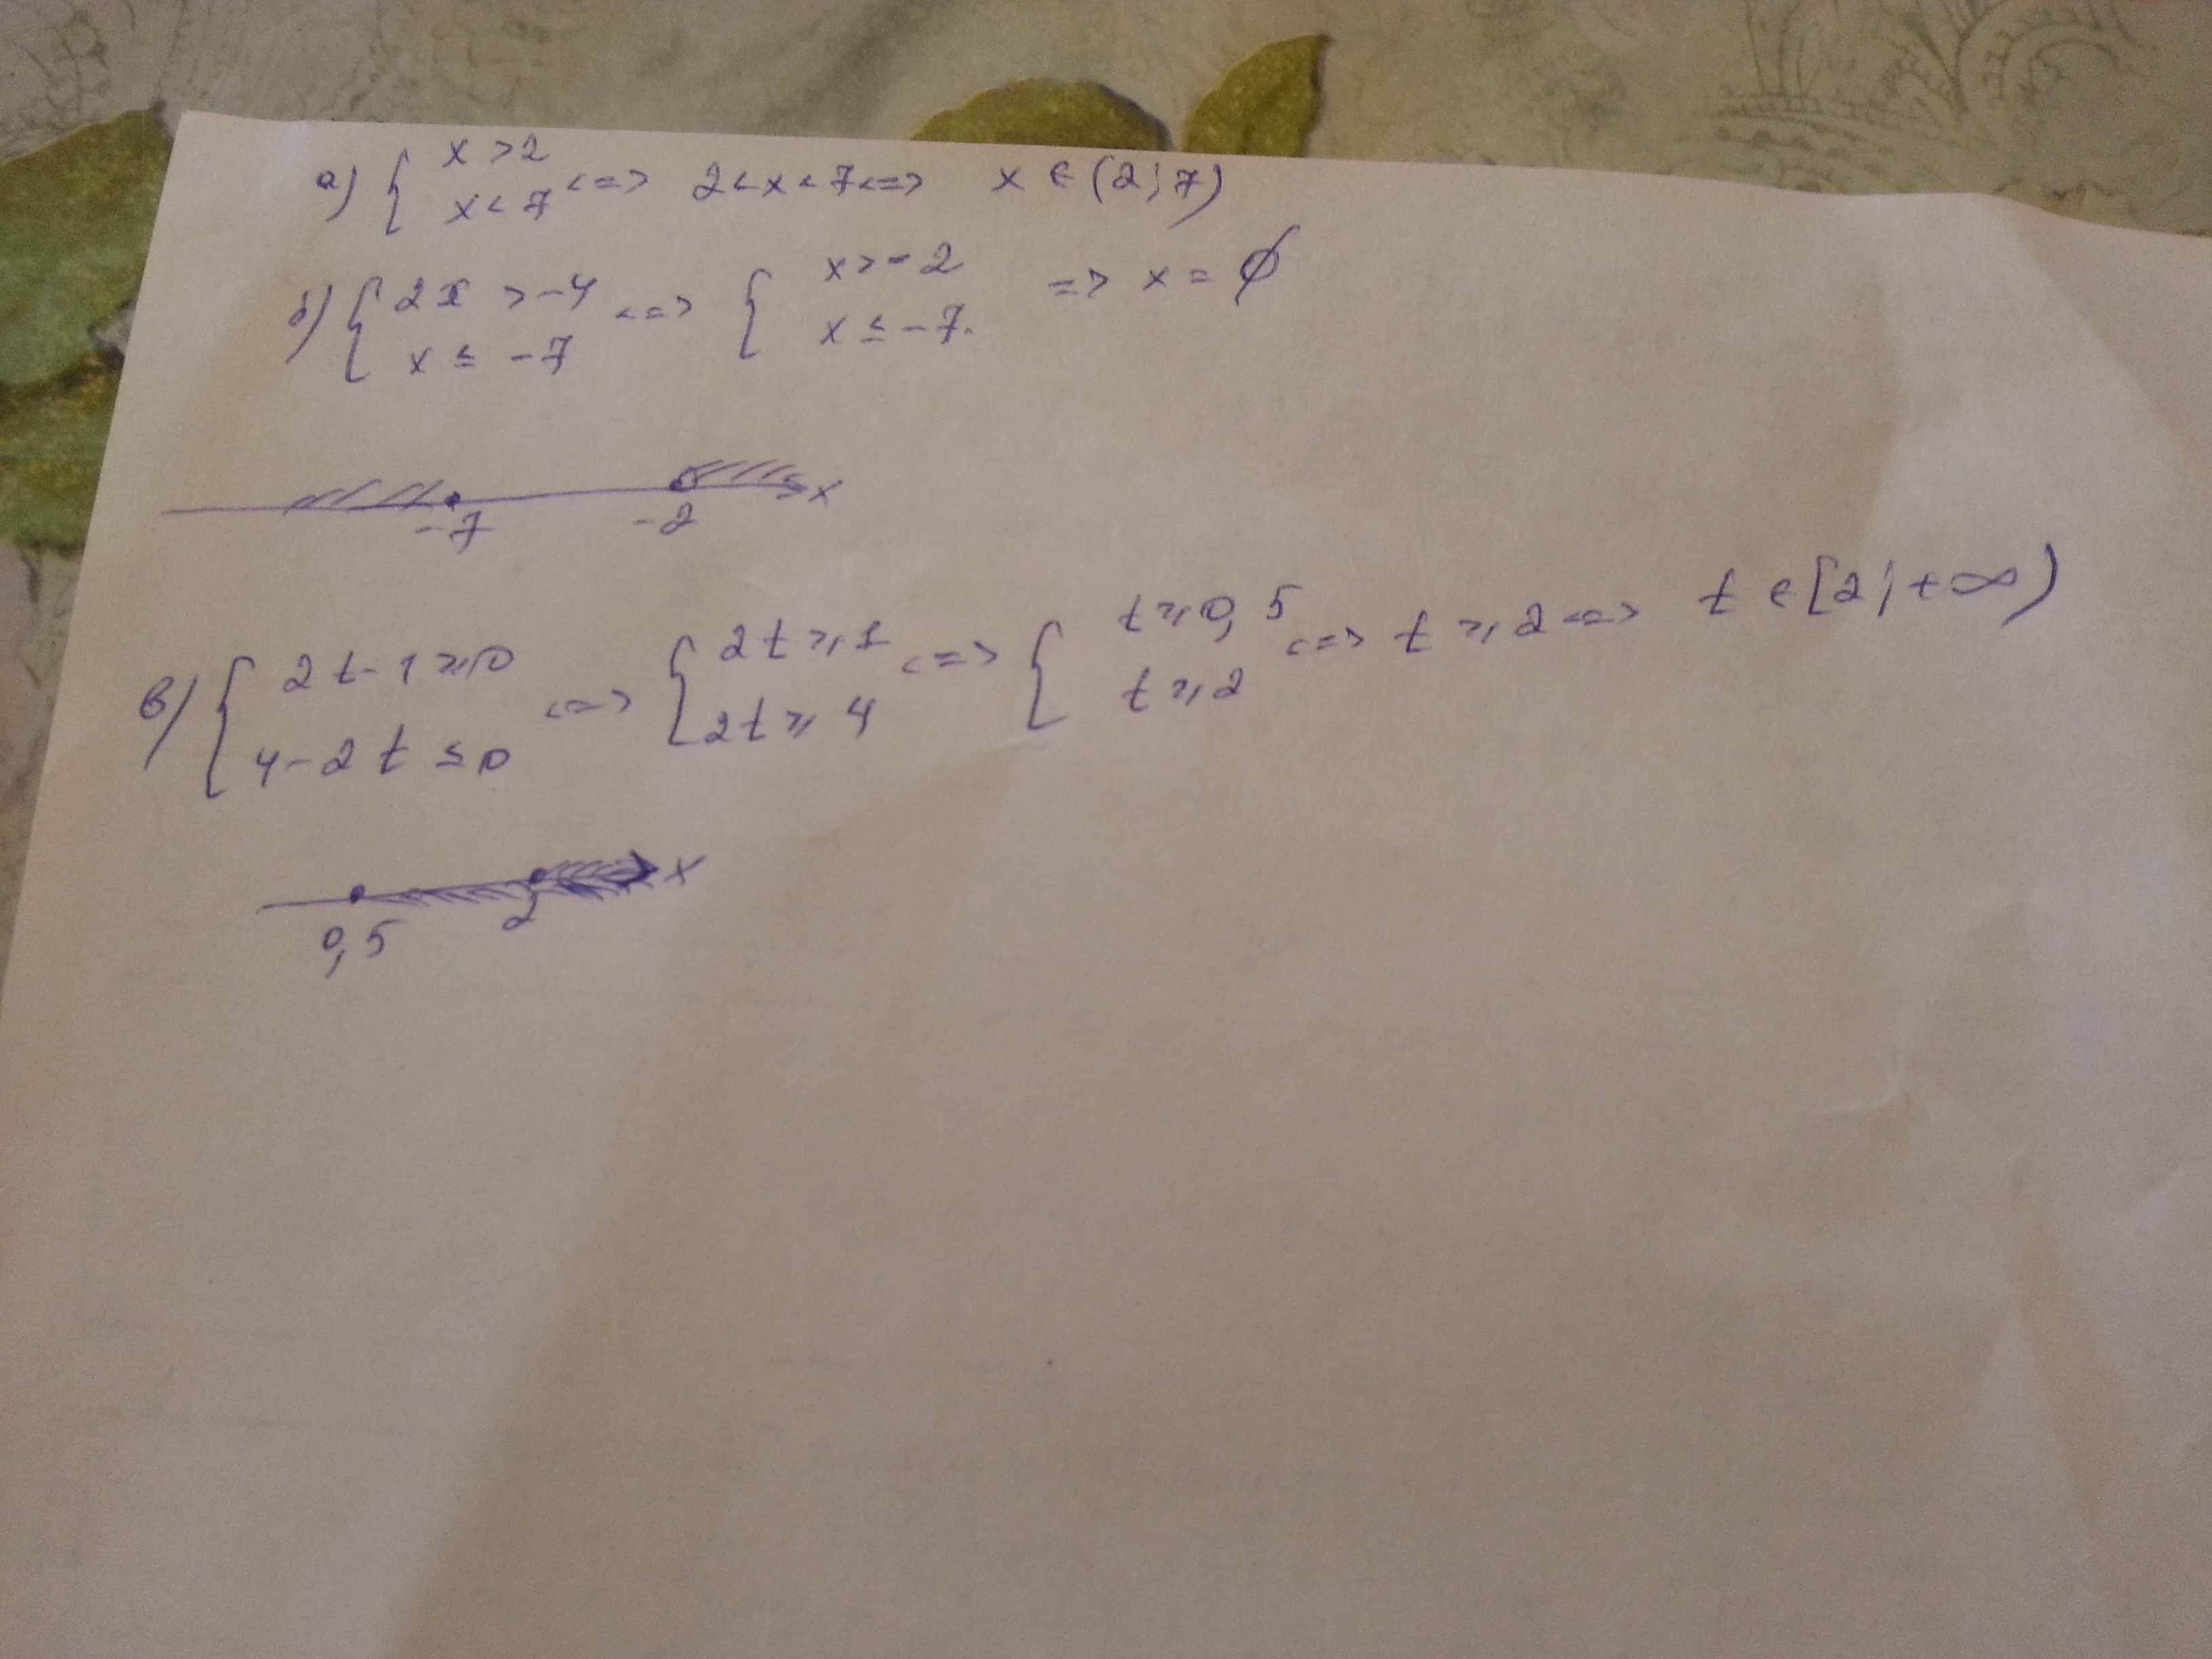 а) { x > 2
x < 7 <=> 2 < x < 7 <=> x ∈ (2; 7)
б) { 2x > -4
x ≤ -7 <=> { x > -2
x ≤ -7. => x = ∅
-7 -2 x
в) { 2t - 1 ≥ 0
4 - 2t ≤ 0 <=> { 2t ≥ 1
2t ≥ 4 <=> { t ≥ 0,5
t ≥ 2 <=> t ≥ 2 <=> t ∈ [2; +∞)
0,5 2 x